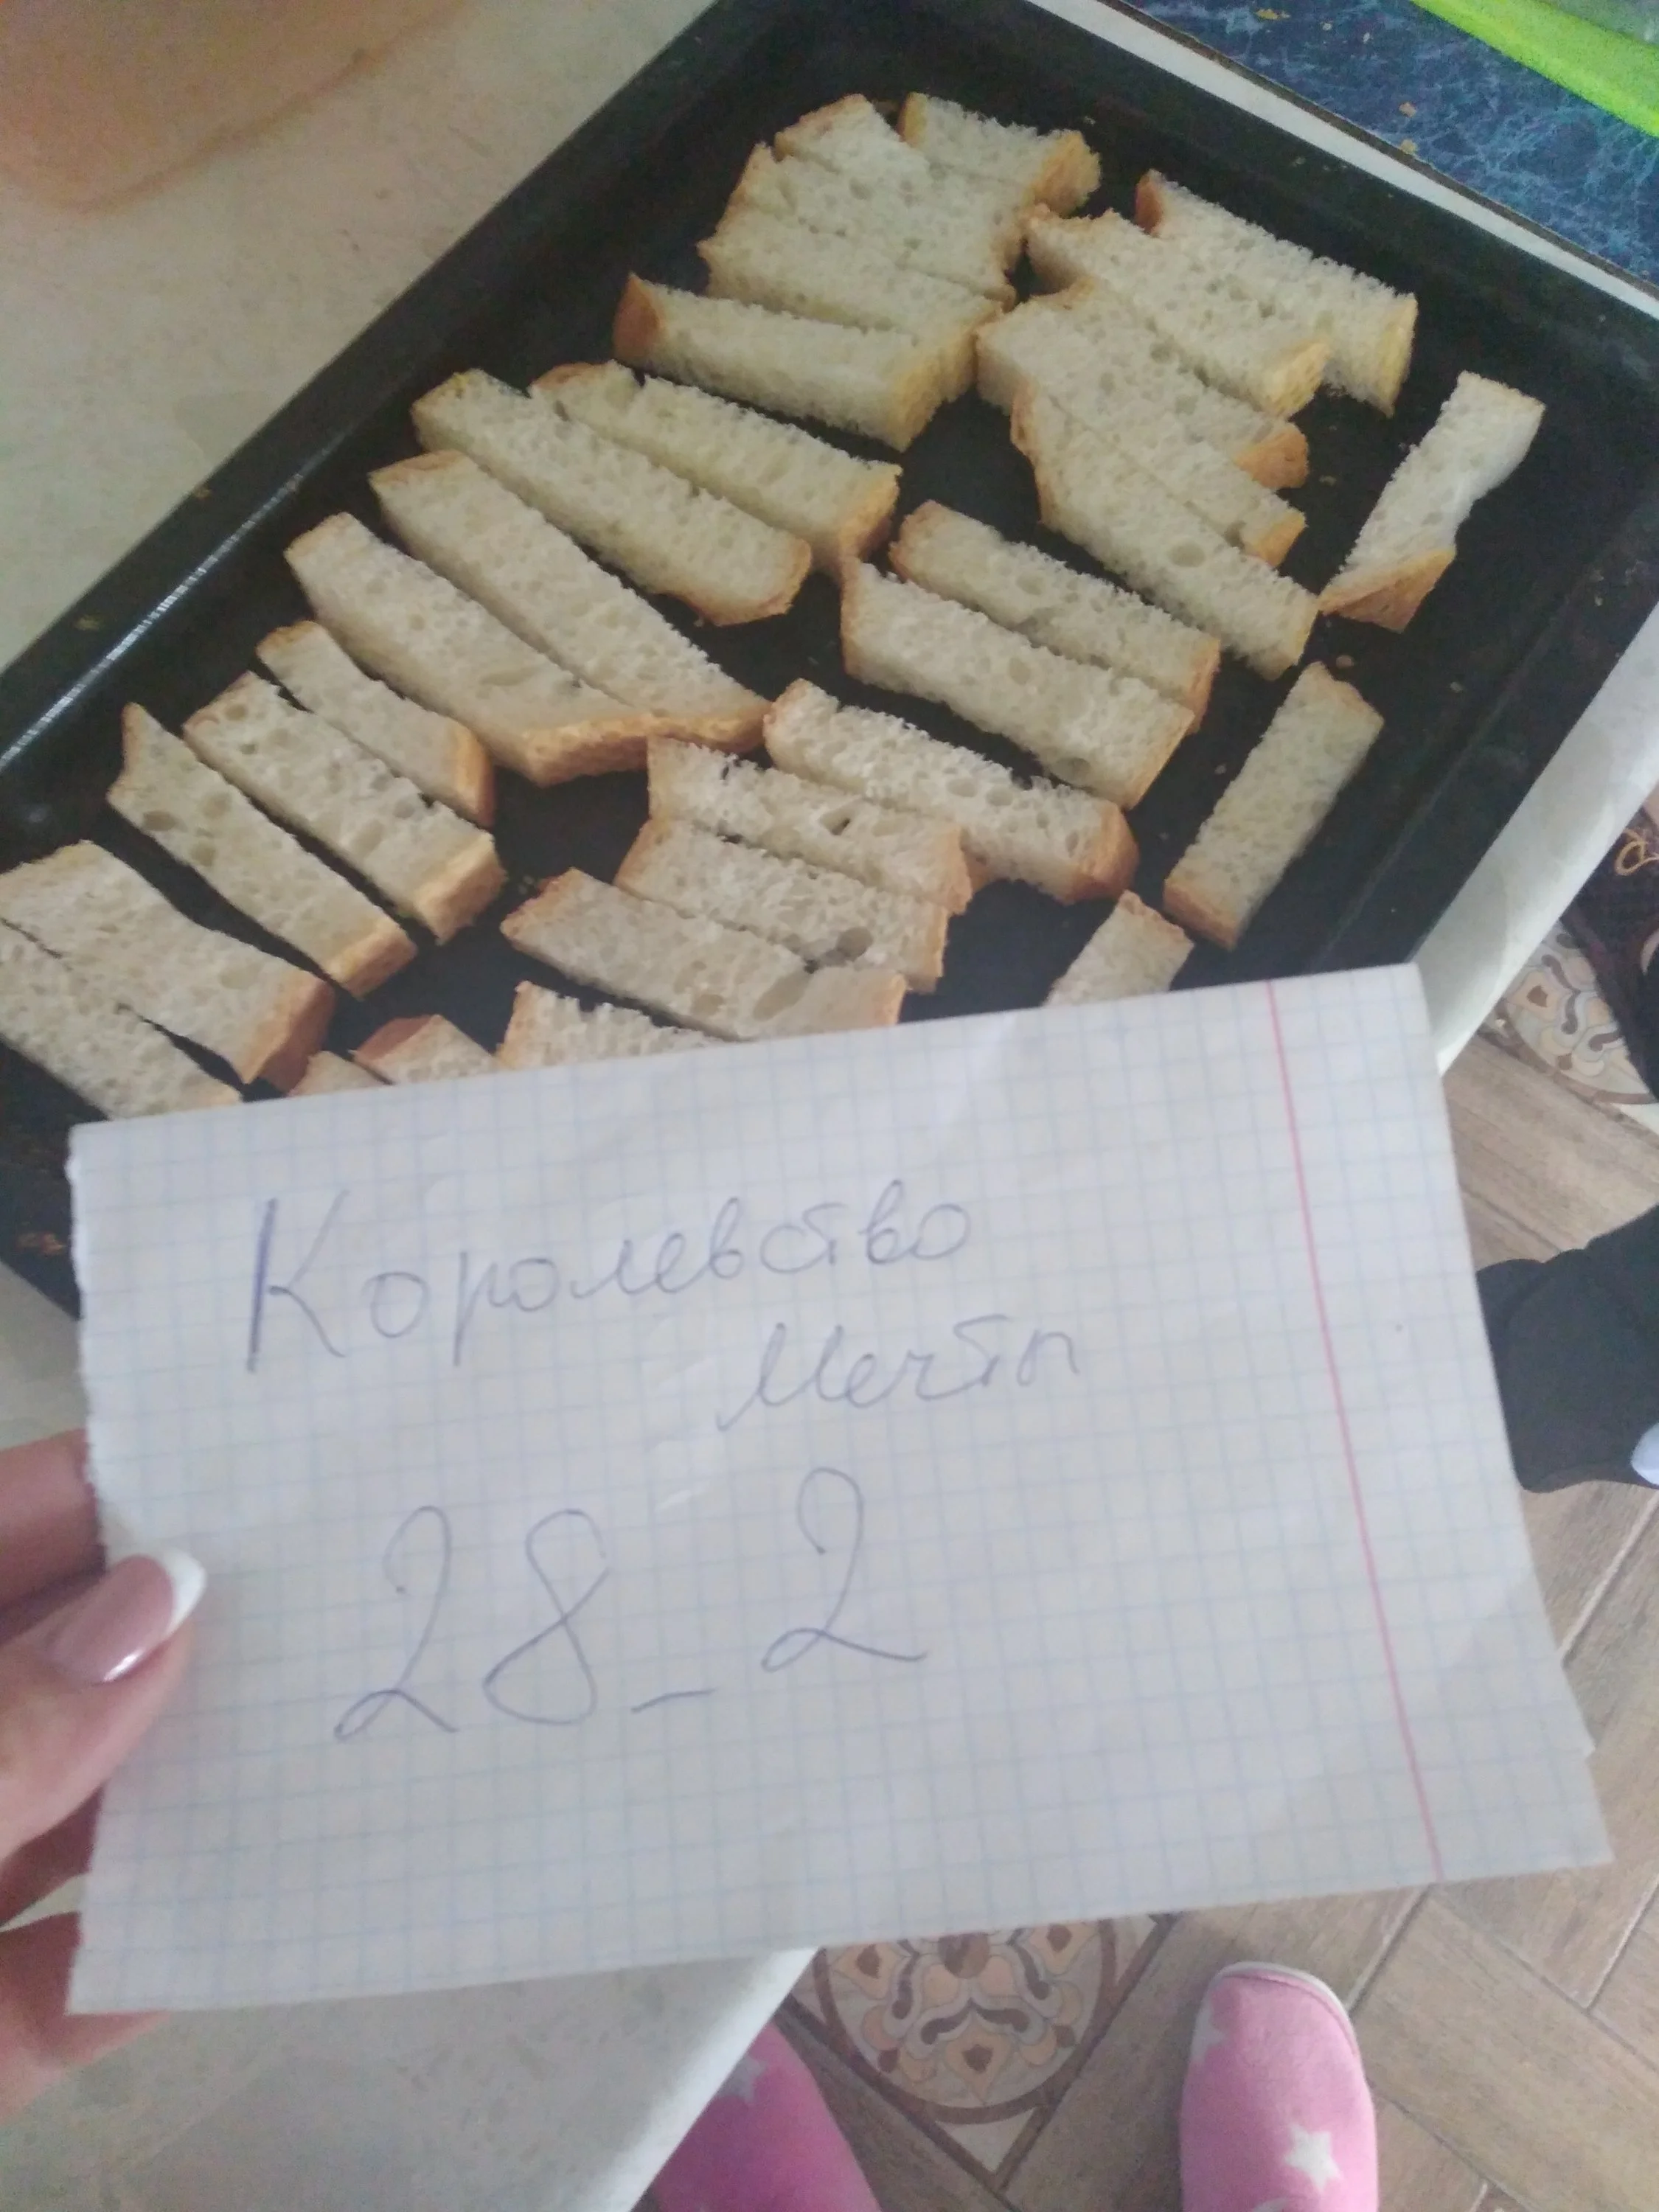 Королевство
Мечты
28_2